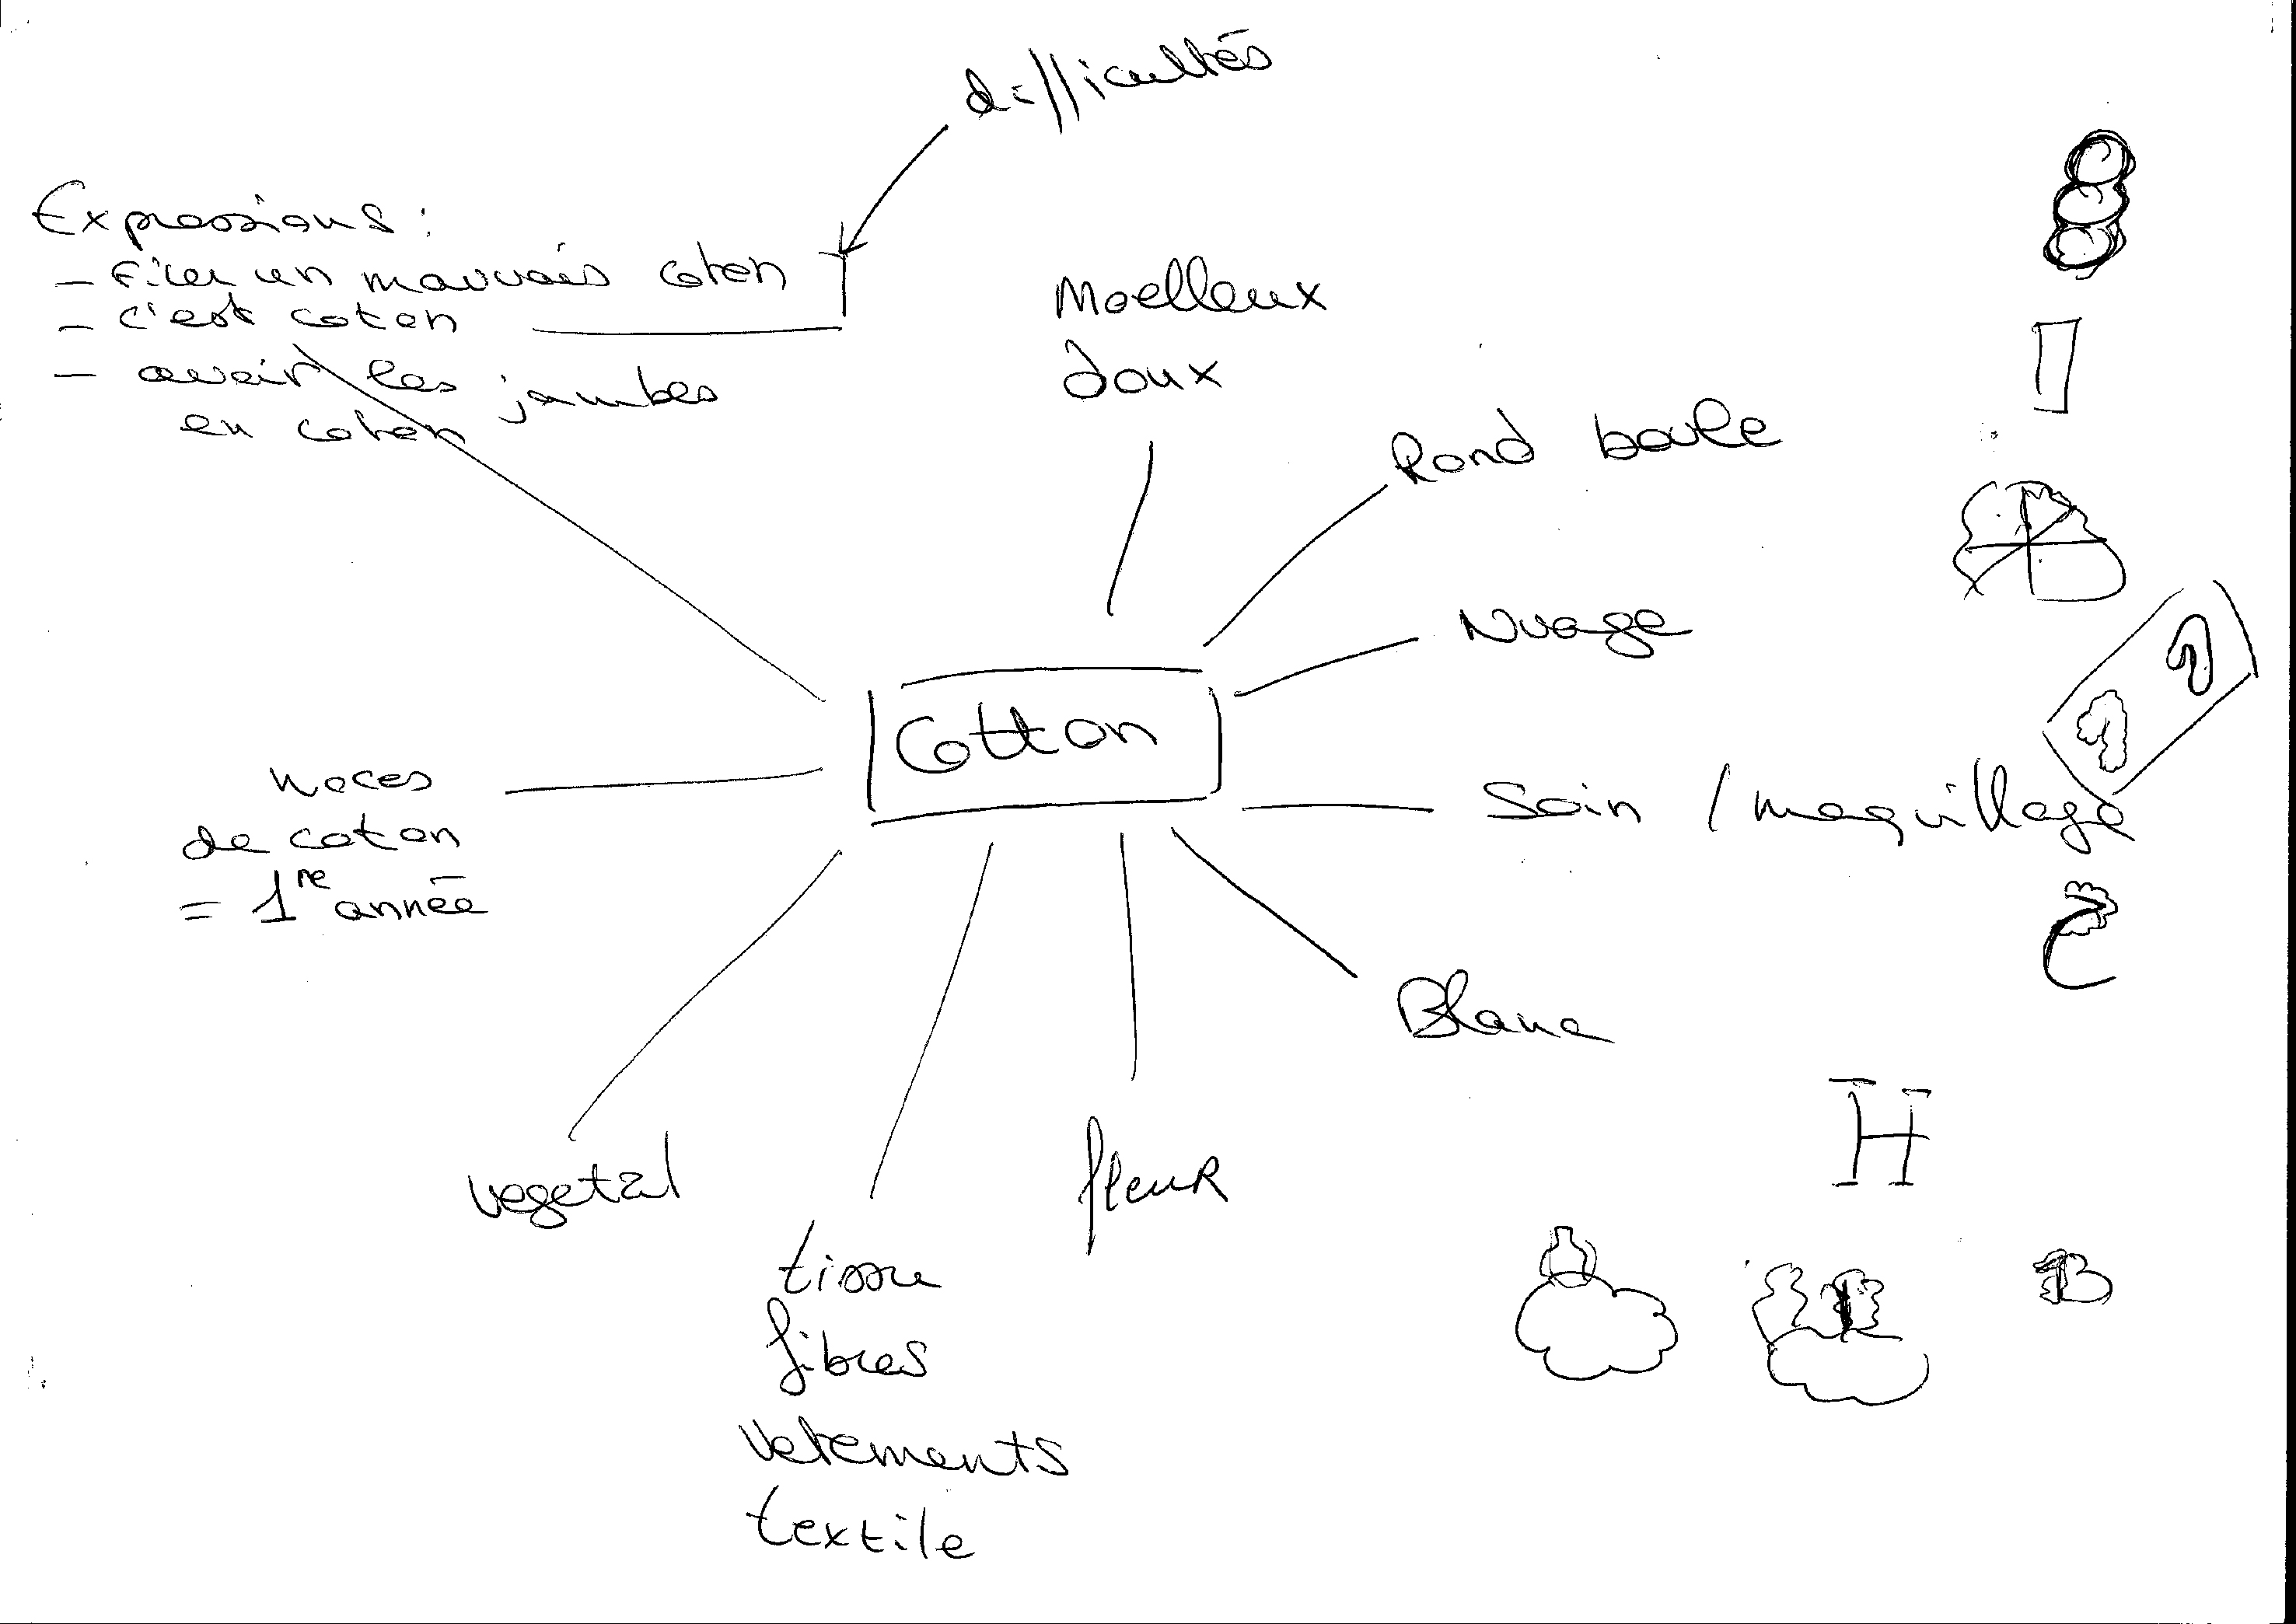 difficultés
Expressions :
- Filer un mauvais coton
- c'est coton
- avoir les jambes
en coton
Moelleux
doux
Rond boule
Nuage
Cotton
Soin / maquillage
noces
de coton
= 1re année
Blanc
vegetal
fleur
tissu
fibres
vetements
textile
H
B